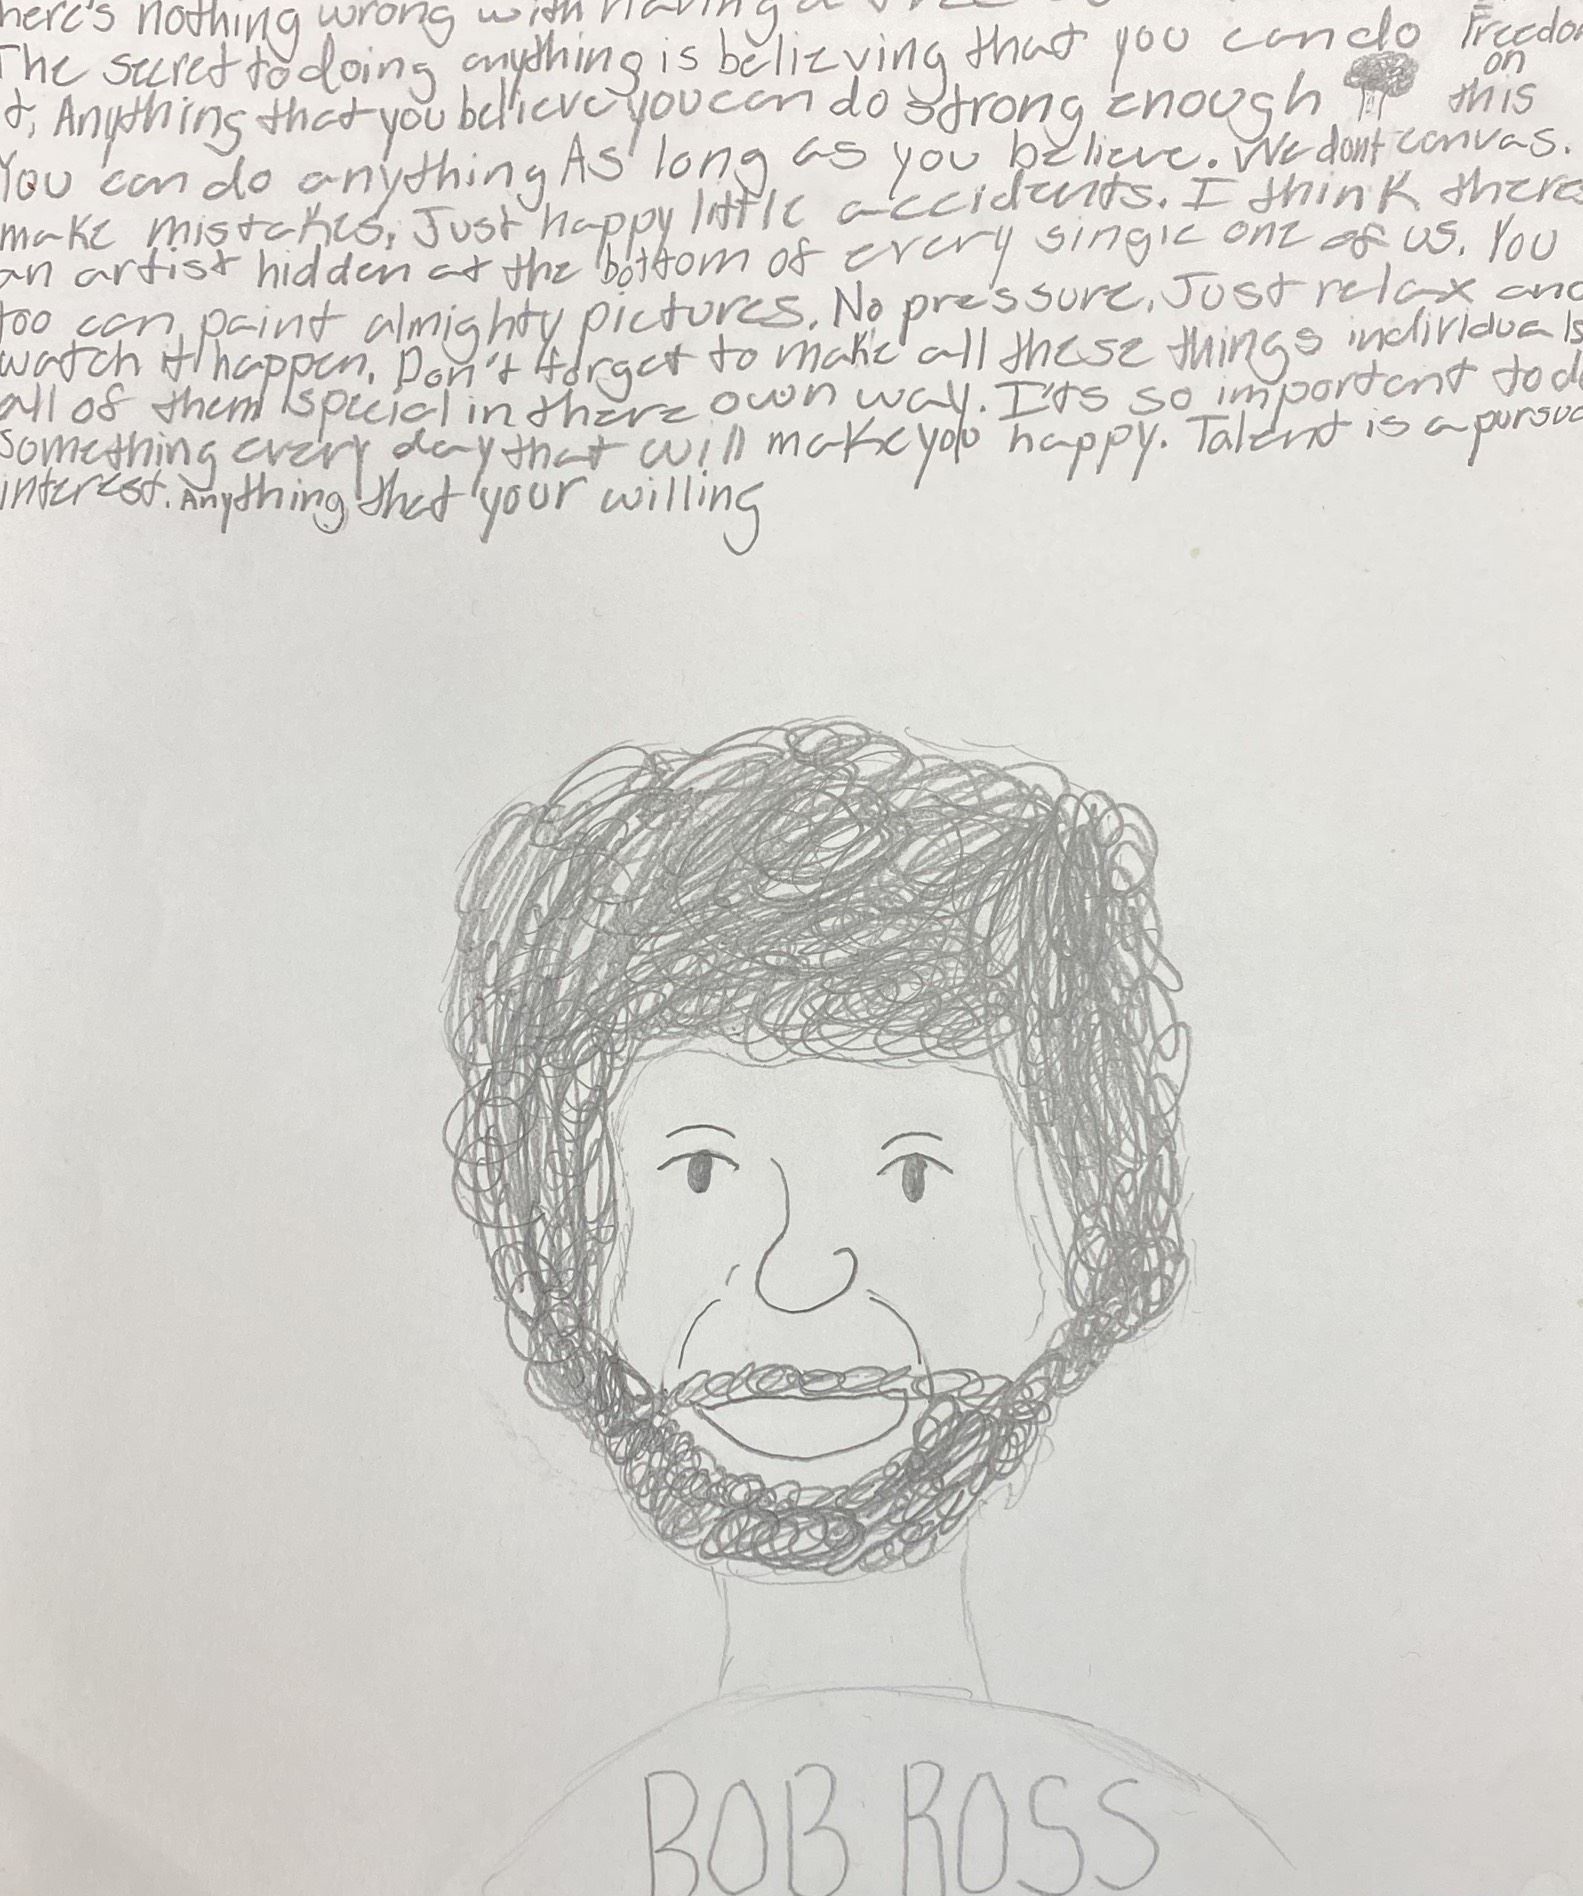 here's nothing wrong with having a
The secret to doing anything is believing that you can do Freedom
on
t, Anything that you believe you can do strong enough this
You can do anything As long as you believe. We dont canvas.
make mistakes, Just happy little accidents. I think theres
an artist hidden at the bottom of every single one of us. You
too can paint almighty pictures. No pressure. Just relax and
watch it happen. Don't forget to make all these things individuals
all of them special in there own way. It's so important to do
something every day that will make you happy. Talent is a pursu
interest. Anything that your willing
BOB ROSS